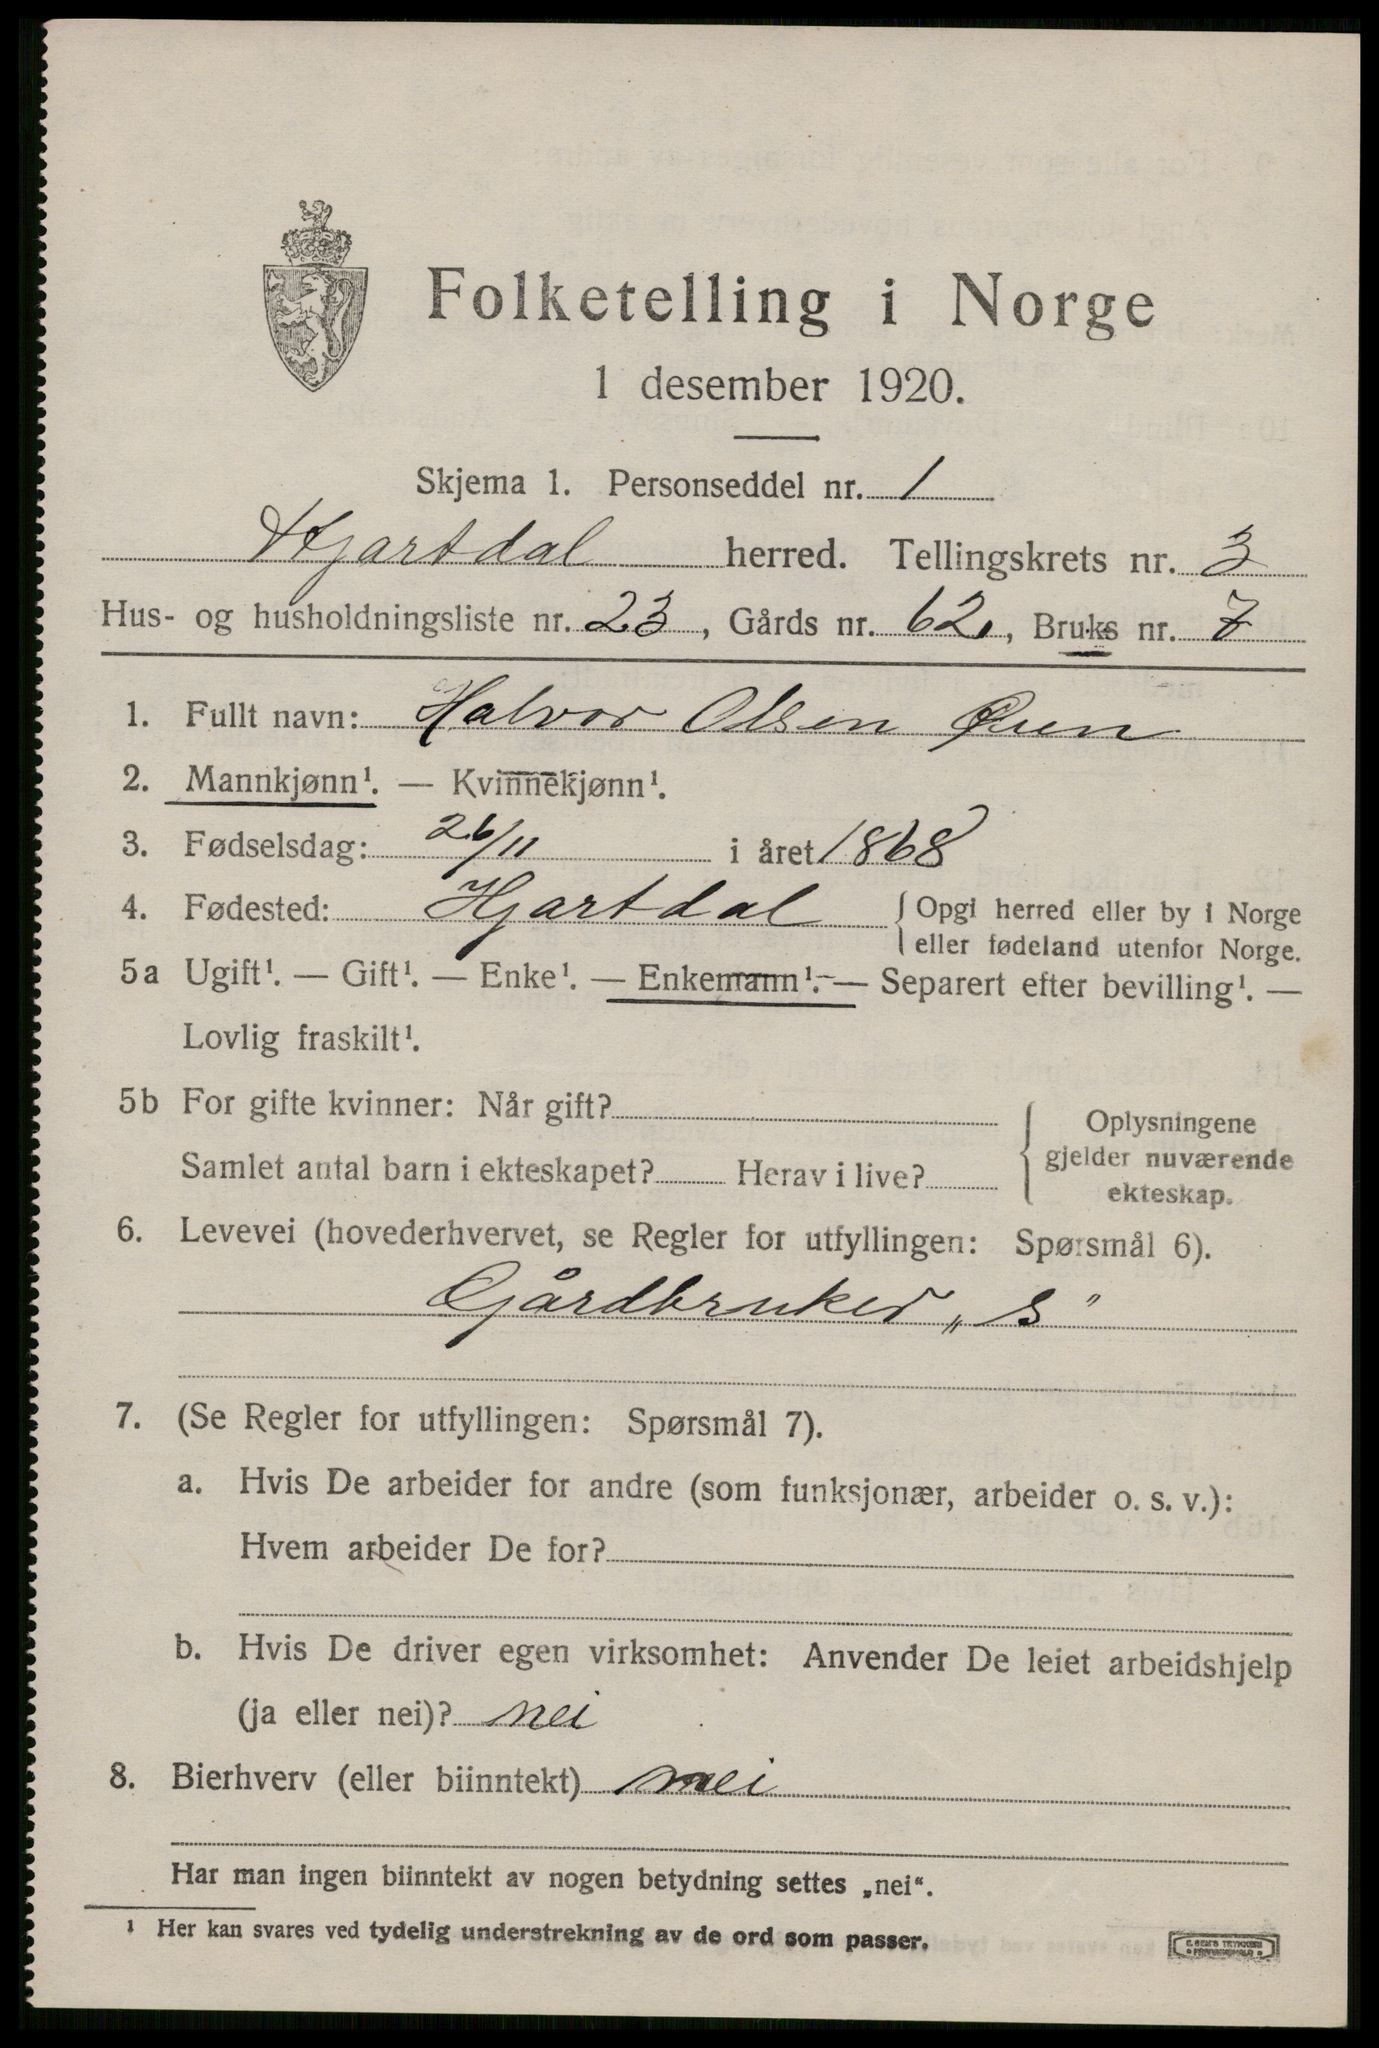 Folketelling i Norge
1 desember 1920.
Skjema 1. Personseddel nr. 1
Hjartdal herred. Tellingskrets nr. 3
Hus- og husholdningsliste nr. 23, Gårds nr. 62, Bruks nr. 7
1. Fullt navn: Halvor Olsen Øien
2. Mannkjønn¹. — Kvinnekjønn¹.
3. Fødselsdag: 26/11 i året 1868
4. Fødested: Hjartdal { Opgi herred eller by i Norge
eller fødeland utenfor Norge.
5a Ugift¹. — Gift¹. — Enke¹. — Enkemann¹. — Separert efter bevilling¹. —
Lovlig fraskilt¹.
5b For gifte kvinner: Når gift?
Samlet antal barn i ekteskapet? Herav i live?
Oplysningene
gjelder nuværende
ekteskap.
6. Levevei (hovederhvervet, se Regler for utfyllingen: Spørsmål 6).
Gårdbruker „s"
7. (Se Regler for utfyllingen: Spørsmål 7).
a. Hvis De arbeider for andre (som funksjonær, arbeider o. s. v.):
Hvem arbeider De for?
b. Hvis De driver egen virksomhet: Anvender De leiet arbeidshjelp
(ja eller nei)? nei
8. Bierhverv (eller biinntekt) nei
Har man ingen biinntekt av nogen betydning settes „nei“.
¹ Her kan svares ved tydelig understrekning av de ord som passer.